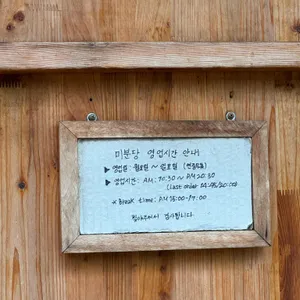 미분당 영업시간 안내
▶ 영업일 : 월요일 ~ 일요일 (연중무휴)
▶ 영업시간 : AM. 10:30 ~ P.M 20:30
(Last order 14:45/20:00)
* Break time : P.M 15:00~17:00
감사합니다.